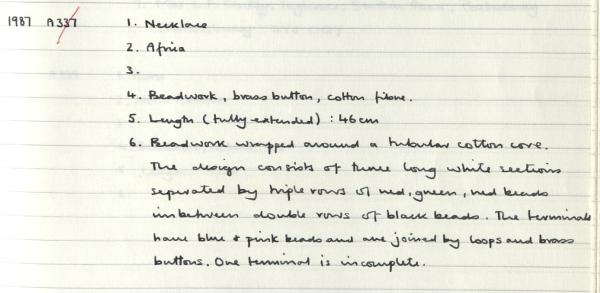 1987 A337 1. Necklace
2. Africa
3.
4. Beadwork, brass button, cotton fibre.
5. Length (fully extended) : 46cm
6. Beadwork wrapped around a tubular cotton core.
The design consists of three long white sections
seperated by triple rows of red, green, red beads
inbetween double rows of black beads. The terminals
have blue & pink beads and are joined by loops and brass
buttons. One terminal is incomplete.